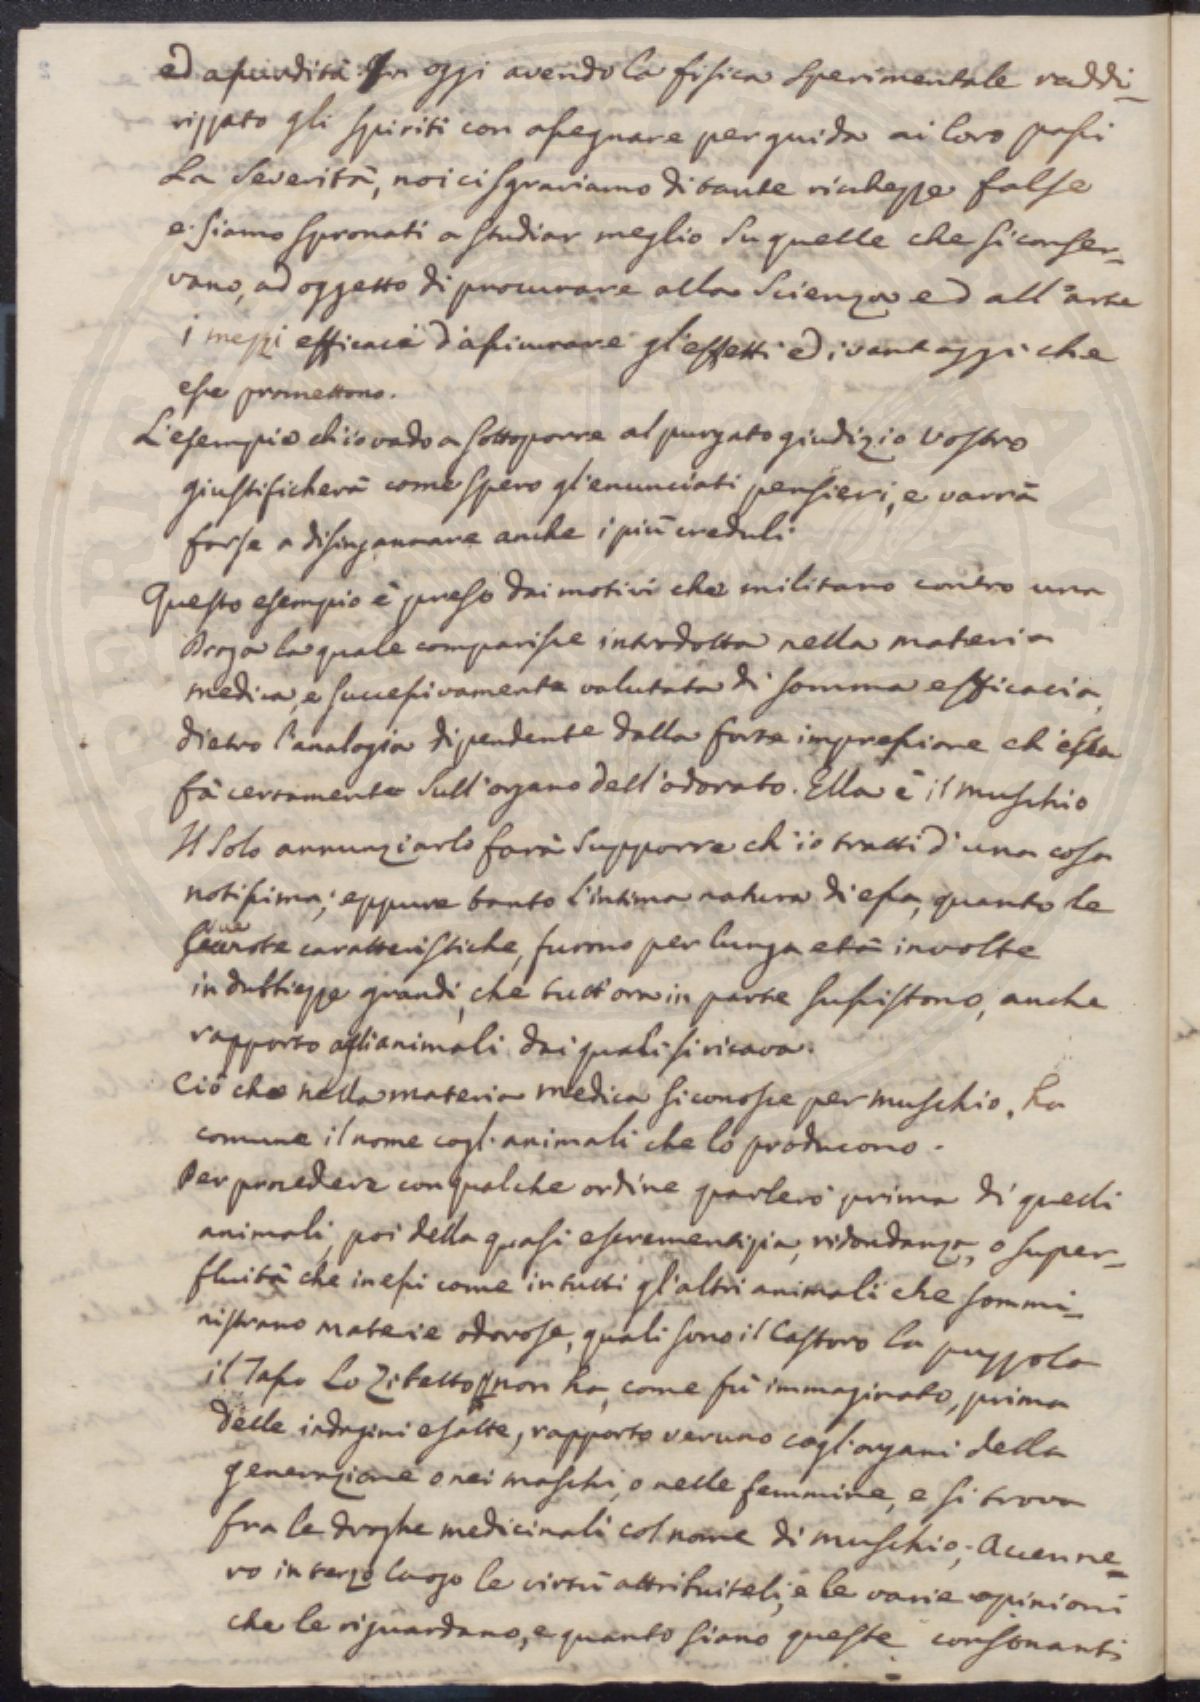 ed assurdità In oggi avendo la fisica sperimentale raddi-
rizzato gli spiriti con assegnare per guida ai loro passi
La Severità, noi ci sgraviamo di tante richezze false
e siamo spronati a studiar meglio su quelle che si conser-
vano, ad oggetto di procurare alla Scienza ed all'arte
i mezzi efficaci d'assicurare gl'effetti ed i vantaggi che
esse promettono.
L'esempio ch'io vado a sottoporre al purgato giudizio vostro
giustificherà come spero gl'enunciati pensieri, e varrà
forse a disingannare anche i più creduli
Questo esempio è preso dai motivi che militano contro una
Droga la quale comparisce introdotta nella materia
medica, e successivamente valutata di somma efficacia,
dietro l'analogia dipendente dalla forte impressione ch'essa
fà certamente sull'organo dell'odorato. Ella è il muschio
Il solo annunziarlo farà supporre ch'io tratti d'una cosa
notissima; eppure tanto l'intima natura di essa, quanto le
sue note caratteristiche, furono per lunga età involte
in dubbiezze grandi, che tutt'ora in parte sussistono, anche
rapporto agli animali dai quali si ricava.
Ciò che nella materia medica si conosce per muschio, ha
comune il nome cogl'animali che lo producono.
Per procedere con qualche ordine parlerò prima di quelli
animali, poi della quasi escrementizia, ridondanza, o super-
fluità che in essi come in tutti gl'altri animali che sommi-
nistrano materie odorose, quali sono il Castoro la puzzola
il Tasso Lo Zibetto non ha, come fù immaginato, prima
delle indagini esatte, rapporto veruno cogl'organi della
generazione o nei maschi, o nelle femmine, e si trova
fra le droghe medicinali col nome di muschio; Accenne-
rò in terzo luogo le virtù attribuiteli, e le varie opinioni
che le riguardano, e quanto siano queste consonanti